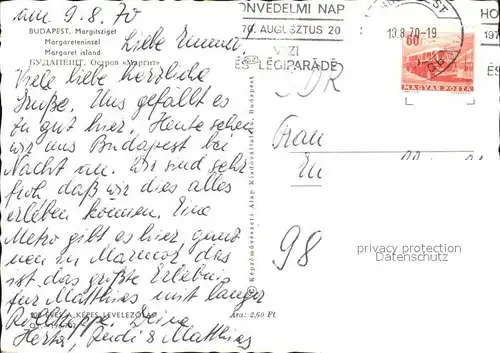 am 9.8.70
BUDAPEST. Margitsziget
Margareteninsel
Margaret island
БУДАПЕШТ. Остров «Маргит»
Liebe Emmi,
Viele liebe herzliche
Grüße. Uns gefällt es
so gut hier. Heute sehen
wir uns Budapest bei
Nacht an. Wir sind sehr
froh daß wir dies alles
erleben können. Eine
Metro gibt es hier, ganz
neu in Marmor, das
ist das größte Erlebnis
für Matthias mit langer
Rolltreppe. Deine
Herta, Rudi & Matthias
A KÉPES LEVELEZŐLAP
Ára: 2,50 Ft
© Képzőművészeti Alap Kiadóvállalata, Budapest
HONVÉDELMI NAP
70. AUGUSZTUS 20
VIZI
ÉS LÉGIPARÁDÉ
BUDAPEST
10.8.70-19
60
MAGYAR POSTA
HO
197
ÉS
DDR
Frau
98
privacy protection
Datenschutz